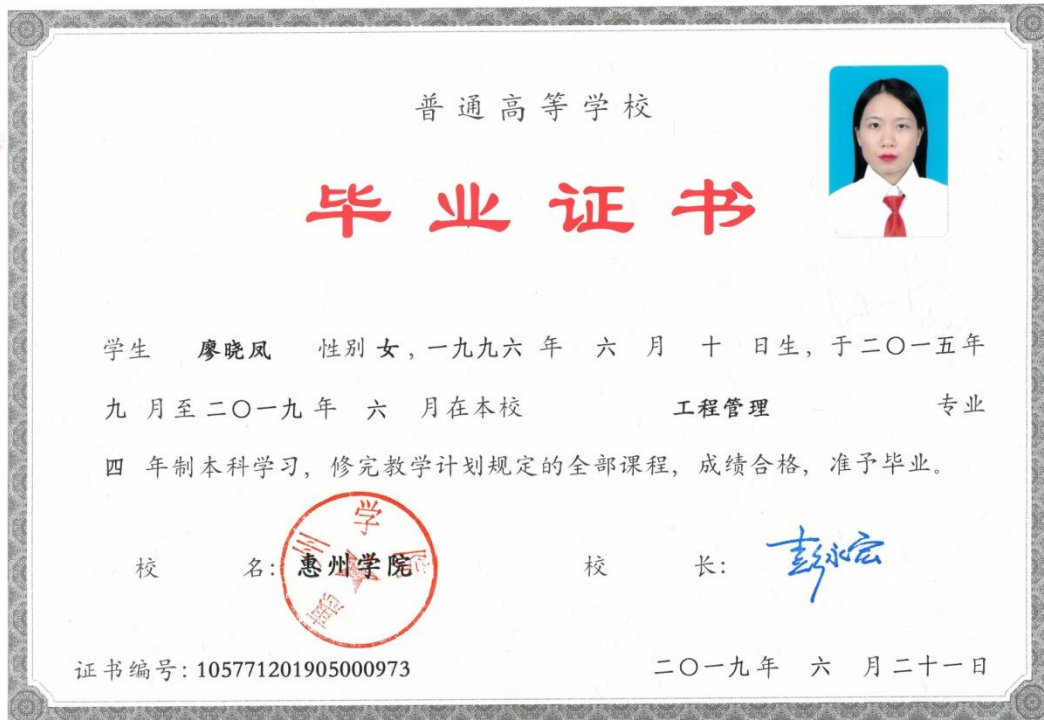 普通高等学校
毕业证书
学生 廖晓凤 性别 女，一九九六 年 六 月 十 日生，于二〇一五年
九 月至 二〇一九 年 六 月在本校 工程管理 专业
四 年制本科学习，修完教学计划规定的全部课程，成绩合格，准予毕业。
校 名：惠州学院 校 长：彭永宏
惠州学院
证书编号：105771201905000973 二〇一九年 六 月二十一日